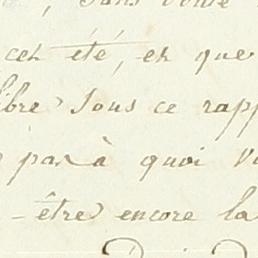 , sans doute
cet été, et que
libre sous ce rapp
pas à quoi v
-être encore la